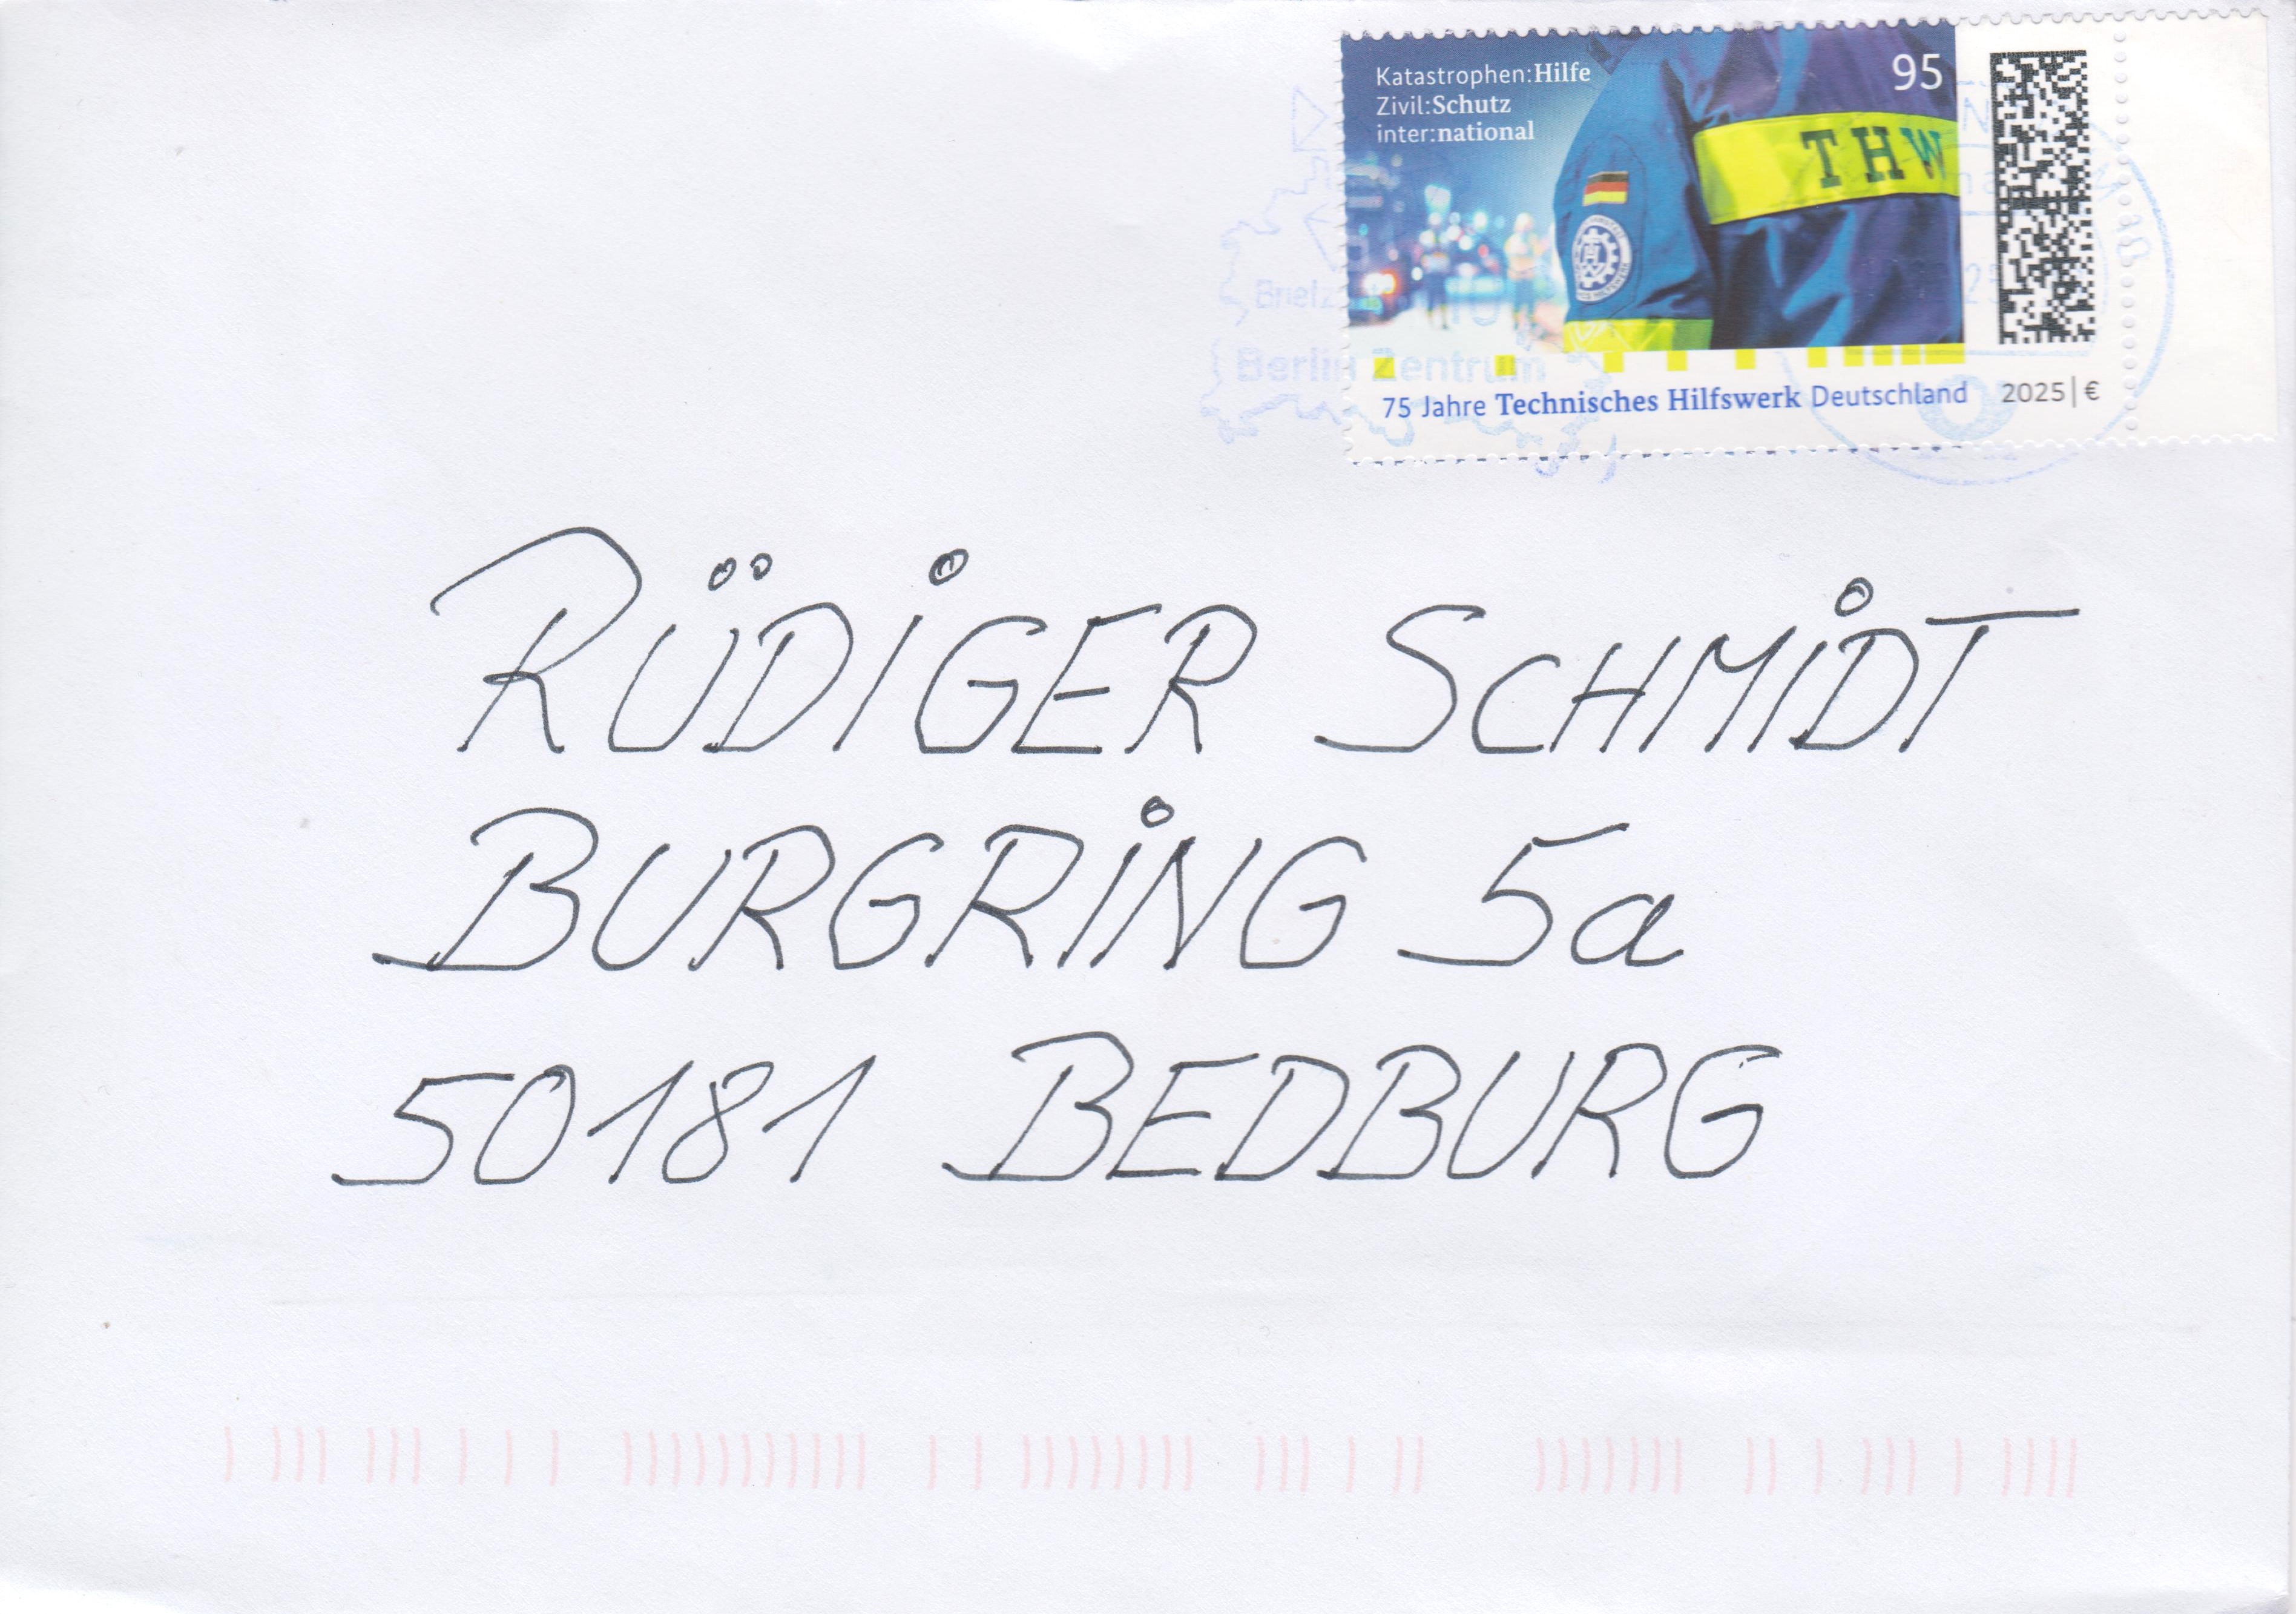 Katastrophen:Hilfe
Zivil:Schutz
inter:national
95
THW
75 Jahre Technisches Hilfswerk Deutschland 2025|€
Berlin Zentrum
RÜDIGER SCHMIDT
BURGRING 5a
50181 BEDBURG